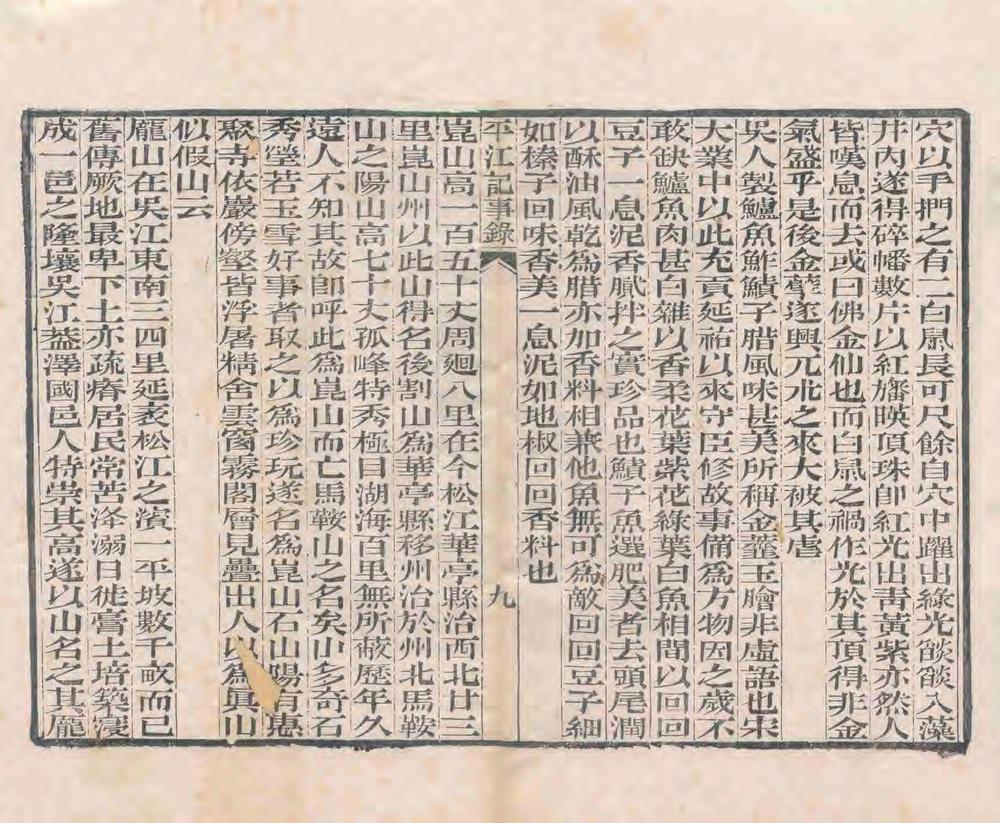 穴以手捫之有二白鼠長可尺餘自穴中躍出綠光燄燄入藻
井內遂得碎幡數片以紅旛暎頂珠卽紅光出靑黃紫亦然人
皆嘆息而去或曰佛金仙也而白鼠之禍作光於其頂得非金
氣盛乎是後金虀遂興兀朮之來大被其虐
吳人製鱸魚鮓鱝子腊風味甚美所稱金虀玉膾非虛語也宋
大業中以此充貢延祐以來守臣修故事備爲方物因之歲不
敢缺鱸魚肉甚白雜以香柔花葉紫花綠葉白魚相閒以回回
豆子一息泥香膩拌之實珍品也鱝子魚選肥美者去頭尾潤
以酥油風乾爲腊亦加香料相兼他魚無可爲敵回回豆子細
如榛子回味香美一息泥如地椒回回香料也
平江記事錄 九
崑山高一百五十丈周廻八里在今松江華亭縣治西北廿三
里崑山州以此山得名後割山爲華亭縣移州治於州北馬鞍
山之陽山高七十丈孤峰特秀極目湖海百里無所蔽歷年久
遠人不知其故卽呼此爲崑山而亡馬鞍山之名矣山多奇石
秀瑩若玉雪好事者取之以爲珍玩遂名爲崑山石山陽有惠
聚寺依巖傍壑皆浮屠精舍雲窗霧閣層見疊出人以爲眞山
似假山云
龐山在吳江東南三四里延袤松江之濱一平坡數千畝而已
舊傳厥地最卑下土亦疏瘠居民常苦滲溺日徙膏土培築寖
成一邑之隆壤吳江葢澤國邑人特崇其高遂以山名之其龐